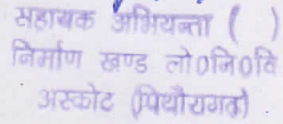 सहायक अभियन्ता ( )
निर्माण खण्ड लो०नि०वि
अस्कोट (पिथौरागढ़)